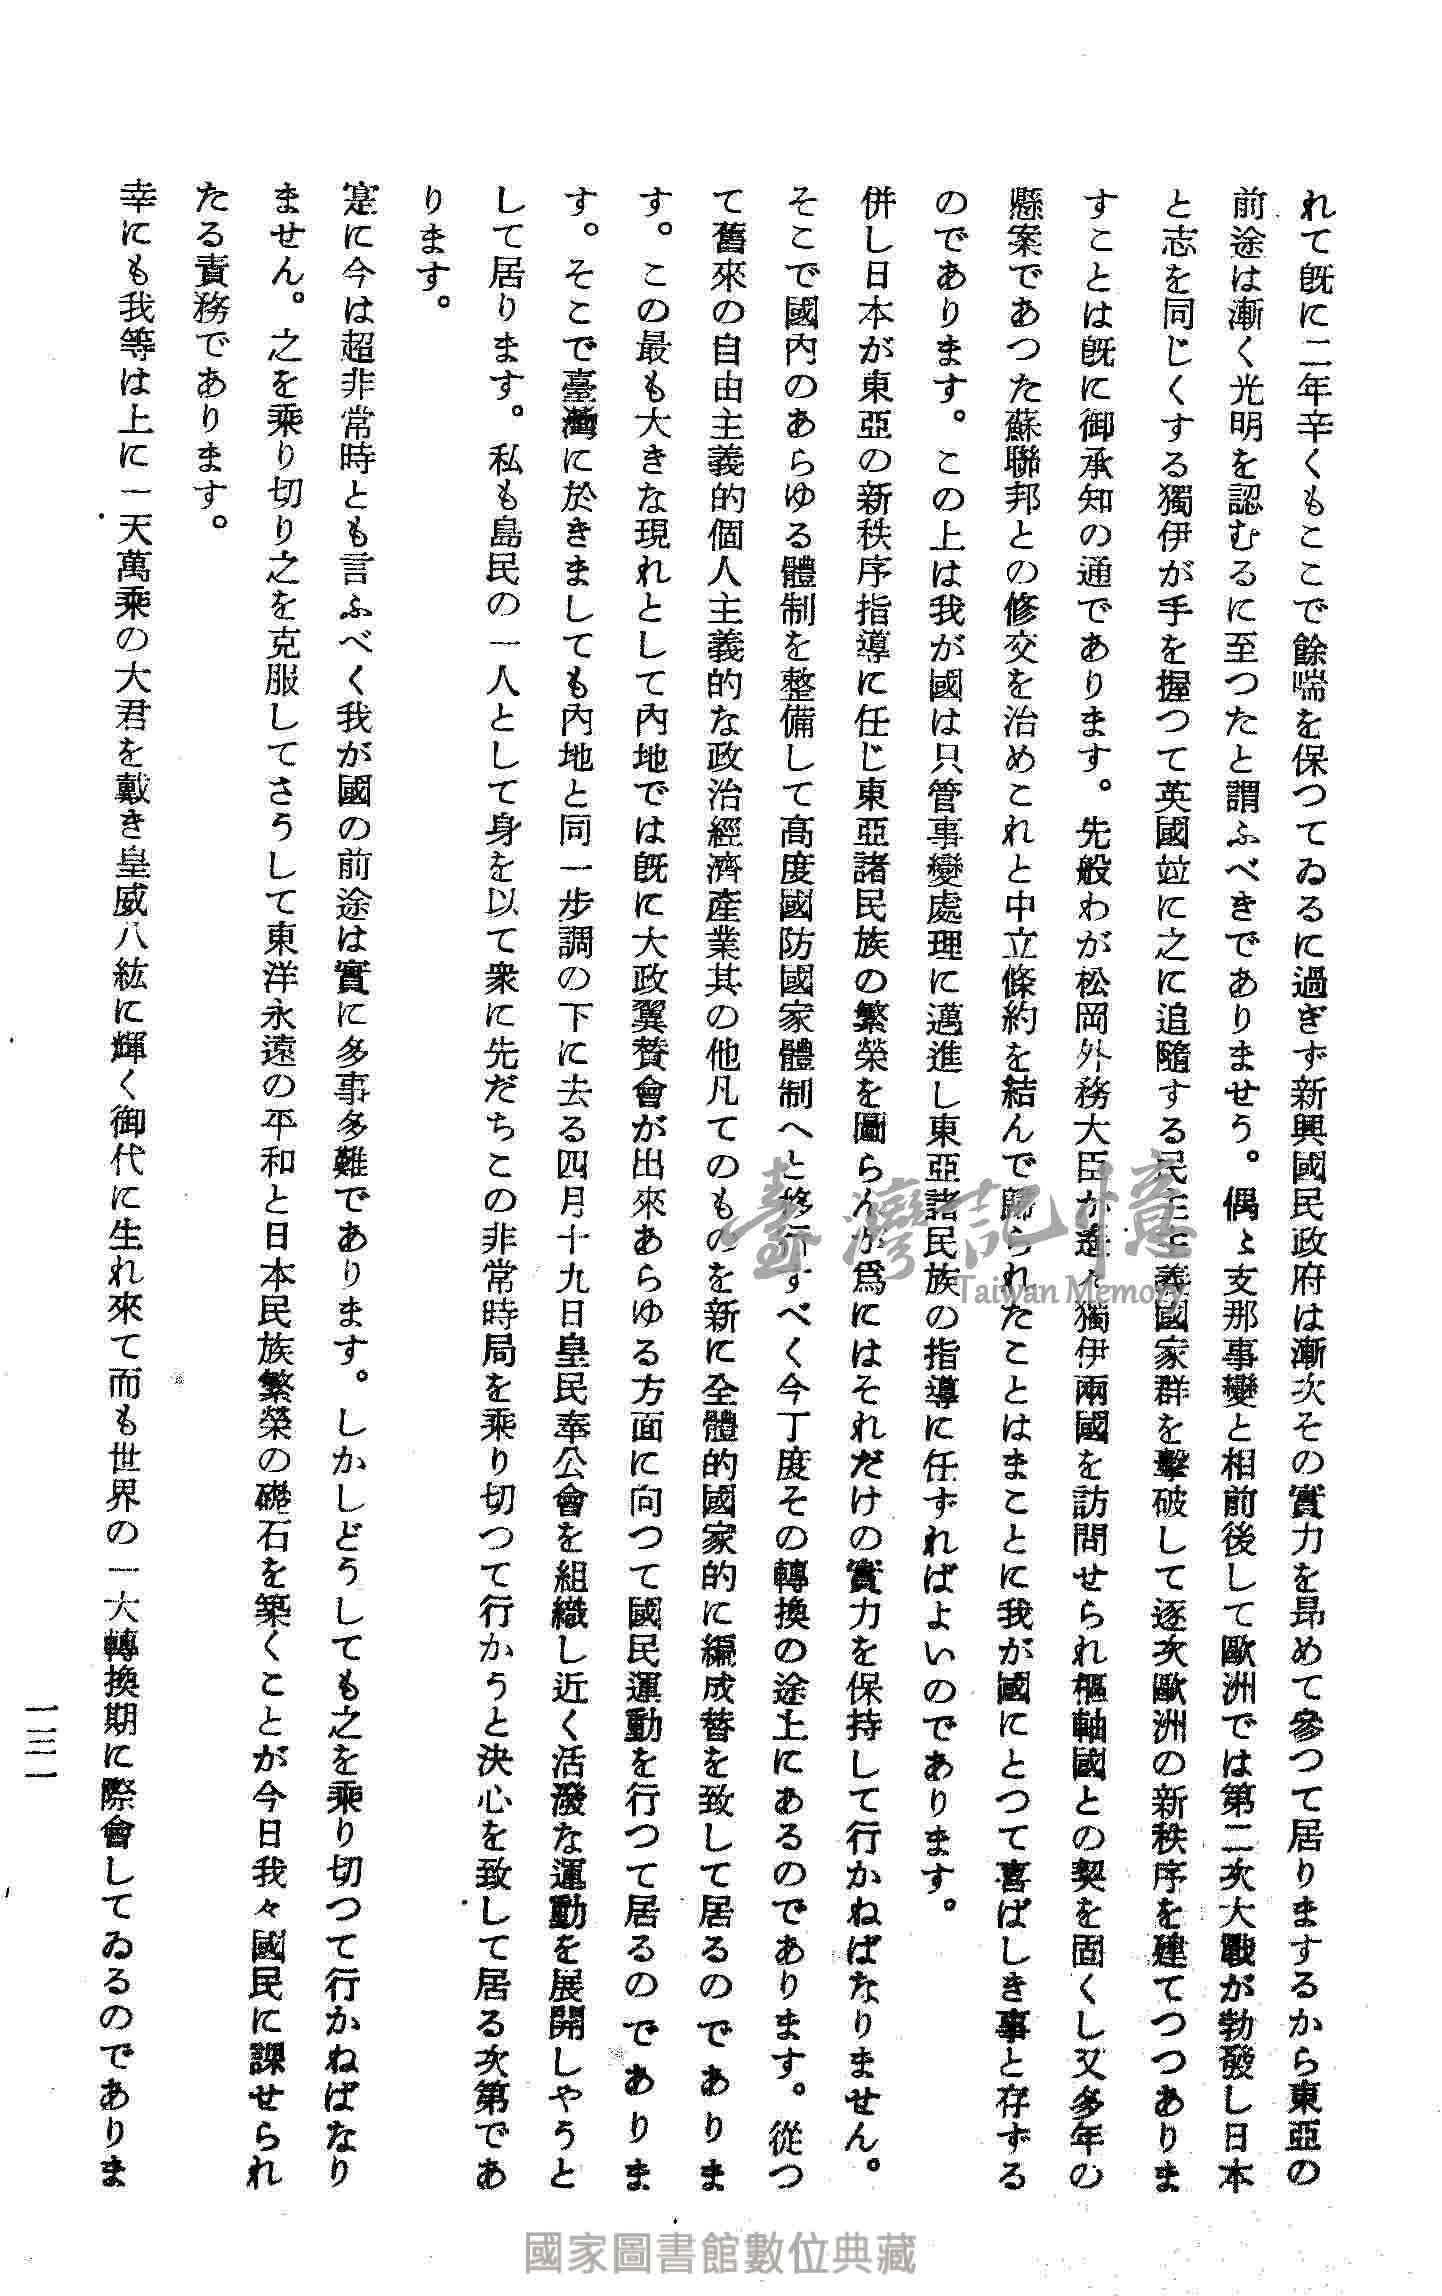 れて既に二年辛くもここで餘喘を保つてゐるに過ぎず新興國民政府は漸次その實力を昂めて參つて居りまするから東亞の
前途は漸く光明を認むるに至つたと謂ふべきでありませう。偶〻支那事變と相前後して歐洲では第二次大戰が勃發し日本
と志を同じくする獨伊が手を握つて英國竝に之に追隨する民主主義國家群を擊破して逐次歐洲の新秩序を建てつつありま
すことは既に御承知の通であります。先般わが松岡外務大臣が遙々獨伊兩國を訪問せられ樞軸國との契を固くし又多年の
懸案であつた蘇聯邦との修交を治めこれと中立條約を結んで歸られたことはまことに我が國にとつて喜ばしき事と存ずる
のであります。この上は我が國は只管事變處理に邁進し東亞諸民族の指導に任ずればよいのであります。
併し日本が東亞の新秩序指導に任じ東亞諸民族の繁榮を圖らんが爲にはそれだけの實力を保持して行かねばなりません。
そこで國內のあらゆる體制を整備して高度國防國家體制へと移行すべく今丁度その轉換の途上にあるのであります。從つ
て舊來の自由主義的個人主義的な政治經濟產業其の他凡てのものを新に全體的國家的に編成替を致して居るのでありま
す。この最も大きな現れとして內地では既に大政翼贊會が出來あらゆる方面に向つて國民運動を行つて居るのでありま
す。そこで臺灣に於きましても內地と同一步調の下に去る四月十九日皇民奉公會を組織し近く活潑な運動を展開しやうと
して居ります。私も島民の一人として身を以て衆に先だちこの非常時局を乘り切つて行かうと決心を致して居る次第であ
ります。
寔に今は超非常時とも言ふべく我が國の前途は實に多事多難であります。しかしどうしても之を乘り切つて行かねばなり
ません。之を乘り切り之を克服してさうして東洋永遠の平和と日本民族繁榮の礎石を築くことが今日我々國民に課せられ
たる責務であります。
幸にも我等は上に一天萬乘の大君を戴き皇威八紘に輝く御代に生れ來て而も世界の一大轉換期に際會してゐるのでありま
一三一
臺灣記憶
Taiwan Memory
國家圖書館數位典藏